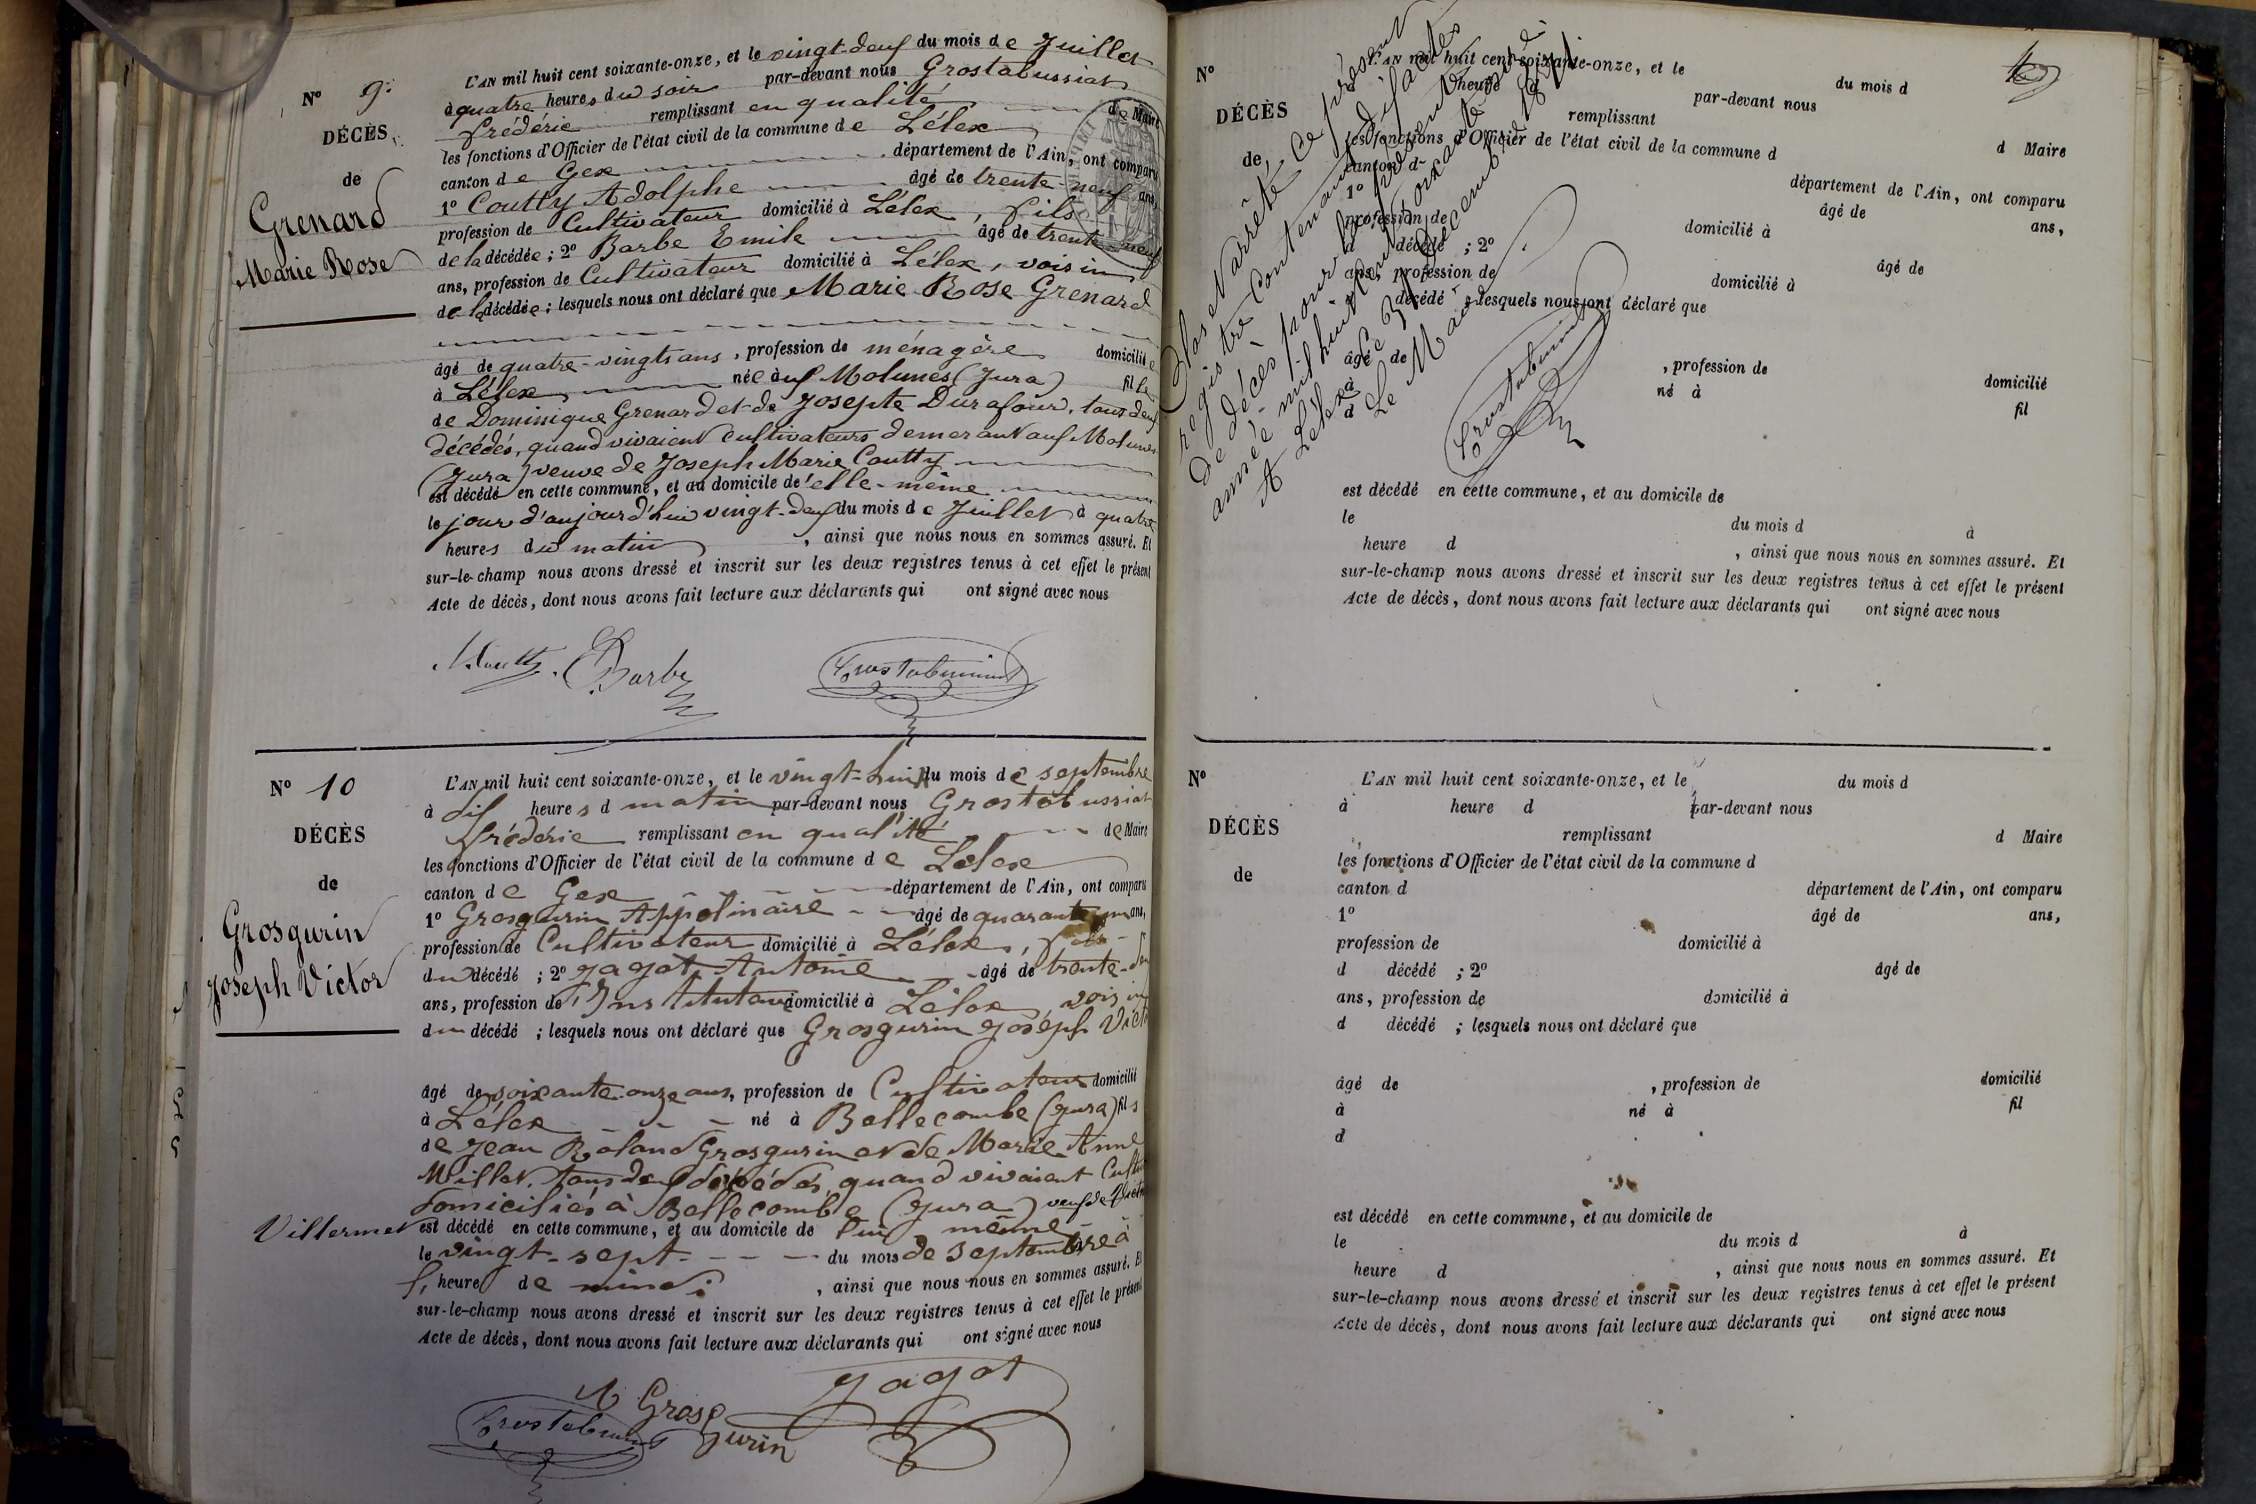 N° 9.
DÉCÈS
de
Grenard
Marie Rose
L'AN mil huit cent soixante-onze, et le vingt-deux du mois de Juillet
à quatre heures du soir par-devant nous Grostabussiat
frédéric remplissant en qualité de Maire
les fonctions d'Officier de l'état civil de la commune de Lélex
canton de Gex département de l'Ain, ont comparu
1° Coutty Adolphe âgé de trente-neuf ans,
profession de Cultivateur domicilié à Lélex, fils
de la décédée; 2° Barbe Emile âgé de trente-neuf
ans, profession de Cultivateur domicilié à Lélex, voisin
de la décédée; lesquels nous ont déclaré que Marie Rose Grenard
âgé de quatre-vingts ans, profession de ménagère domicilié
à Lélex née aux Molunes (Jura) fille
de Dominique Grenard et de Josepte Durafour, tous deux
décédés, quand vivaient cultivateurs demeurant aux Molunes
(Jura) veuve de Joseph Marie Coutty
est décédé en cette commune, et au domicile de elle-même
le jour d'aujourd'hui vingt-deux du mois de Juillet à quatre
heures du matin, ainsi que nous nous en sommes assuré. Et
sur-le-champ nous avons dressé et inscrit sur les deux registres tenus à cet effet le présent
Acte de décès, dont nous avons fait lecture aux déclarants qui ont signé avec nous
A Coutty. E Barbe Grostabussiat
N° 10
DÉCÈS
de
Grosgurin
Joseph Victor
L'AN mil huit cent soixante-onze, et le vingt-huit du mois de septembre
à dix heures d matin par-devant nous Grostabussiat
frédéric remplissant en qualité de Maire
les fonctions d'Officier de l'état civil de la commune de Lélex
canton de Gex département de l'Ain, ont comparu
1° Grosgurin Appolinaire âgé de quarante un ans,
profession de Cultivateur domicilié à Lélex, fils
du décédé; 2° Jagot Antoine âgé de trente-
ans, profession de Instituteur domicilié à Lélex voisin
du décédé; lesquels nous ont déclaré que Grosgurin Joseph Victor
âgé de soixante-onze ans, profession de Cultivateur domicilié
à Lélex né à Bellecombe (Jura) fils
de Jean Roland Grosgurin et de Marie Anne
Millet, tous deux décédés, quand vivaient Culti
domiciliés à Bellecombe (Jura) veuf de
Villermet est décédé en cette commune, et au domicile de lui même
le vingt-sept du mois de Septembre à
heure de minuit, ainsi que nous nous en sommes assuré. Et
sur-le-champ nous avons dressé et inscrit sur les deux registres tenus à cet effet le présent
Acte de décès, dont nous avons fait lecture aux déclarants qui ont signé avec nous
A Grosgurin Jagot
Grostabussiat
N°
DÉCÈS
de
L'AN mil huit cent soixante-onze, et le du mois d
heure d par-devant nous
remplissant d Maire
les fonctions d'Officier de l'état civil de la commune d
canton d département de l'Ain, ont comparu
1° âgé de ans,
profession de domicilié à
d décédé ; 2° âgé de
ans, profession de domicilié à
d décédé ; lesquels nous ont déclaré que
âgé de , profession de domicilié
à né à fil
d
est décédé en cette commune, et au domicile de
le du mois d à
heure d , ainsi que nous nous en sommes assuré. Et
sur-le-champ nous avons dressé et inscrit sur les deux registres tenus à cet effet le présent
Acte de décès, dont nous avons fait lecture aux déclarants qui ont signé avec nous
Clos et arrêté ce présent
registre contenant dix actes
de décès pour la présente
année mil huit cent soixante onze
A Lélex le 31 Décembre 1871
Le Maire
Grostabussiat
N°
DÉCÈS
de
L'AN mil huit cent soixante-onze, et le du mois d
à heure d par-devant nous
remplissant d Maire
les fonctions d'Officier de l'état civil de la commune d
canton d département de l'Ain, ont comparu
1° âgé de ans,
profession de domicilié à
d décédé ; 2° âgé de
ans, profession de domicilié à
d décédé ; lesquels nous ont déclaré que
âgé de , profession de domicilié
à né à fil
d
est décédé en cette commune, et au domicile de
le du mois d à
heure d , ainsi que nous nous en sommes assuré. Et
sur-le-champ nous avons dressé et inscrit sur les deux registres tenus à cet effet le présent
Acte de décès, dont nous avons fait lecture aux déclarants qui ont signé avec nous